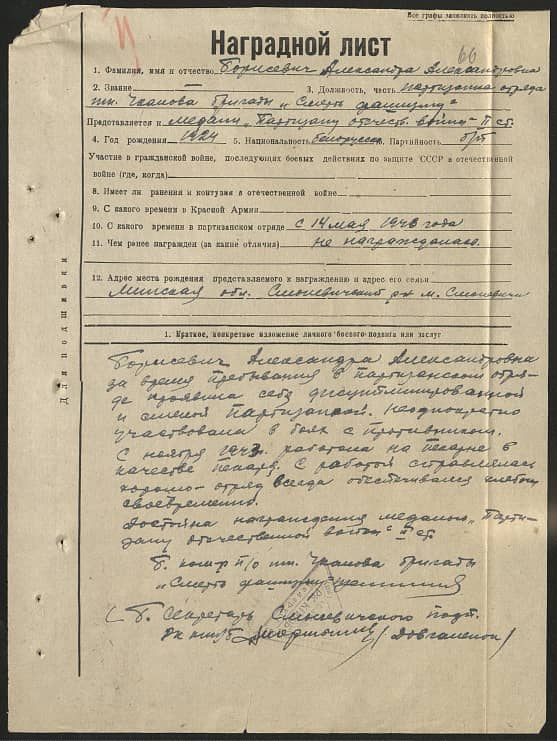 Все графы заполнять полностью
66
Наградной лист
1. Фамилия, имя и отчество Борисевич Александра Александровна
2. Звание — 3. Должность, часть партизанка отряда
им. Чкалова бригады „Смерть фашизму"
Представляется к медали „Партизану отечеств. войны" II ст.
4. Год рождения 1924 5. Национальность белорусска 6. Партийность б/п
Участие в гражданской войне, последующих боевых действиях по защите СССР и отечественной
войне (где, когда)
8. Имеет ли ранения и контузии в отечественной войне
9. С какого времени в Красной Армии
10. С какого времени в партизанском отряде с 14 мая 1943 года
11. Чем ранее награжден (за какие отличия) не награждалась
12. Адрес места рождения представляемого к награждению и адрес его семьи
Минская обл. Смолевичский р-н м. Смолевичи
Для подшивки
1. Краткое, конкретное изложение личного боевого подвига или заслуг
Борисевич Александра Александровна
за время пребывания в партизанском отря-
де проявила себя дисциплинированной
и смелой партизанкой. Неоднократно
участвовала в боях с противником.
С ноября 1943г. работала на пекарне в
качестве пекаря. С работой справлялась
хорошо - отряд всегда обеспечивался хлебом
своевременно.
Достойна награждения медалью „Парти-
зану отечественной войны" II ст.
б. ком-р п/о им. Чкалова бригады
„Смерть фашизму"
б. Секретарь Смолевичского подп.
РК КП(б)Б (Довгаленок)